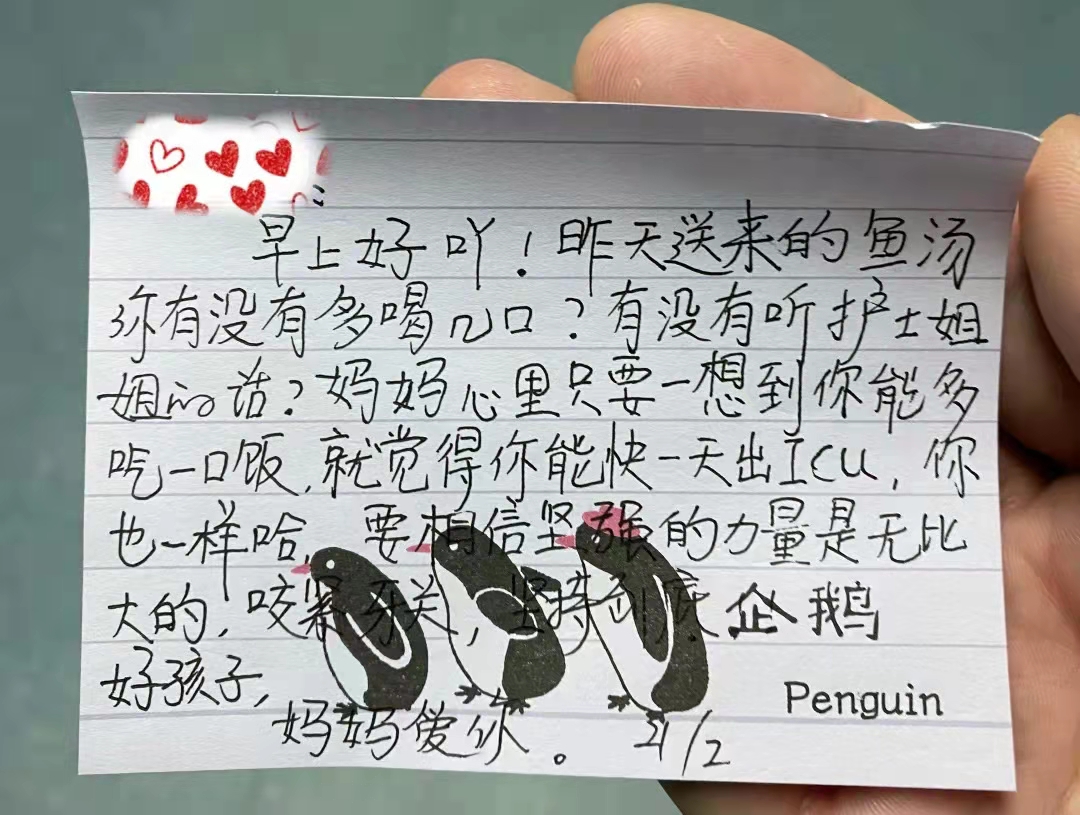 :
早上好吖！昨天送来的鱼汤
你有没有多喝几口？有没有听护士姐
姐的话？妈妈心里只要一想到你能多
吃一口饭，就觉得你能快一天出ICU，你
也一样哈，要相信坚强的力量是无比
大的，咬紧牙关，坚持到底 企鹅
好孩子，
Penguin
妈妈爱你。 21/2